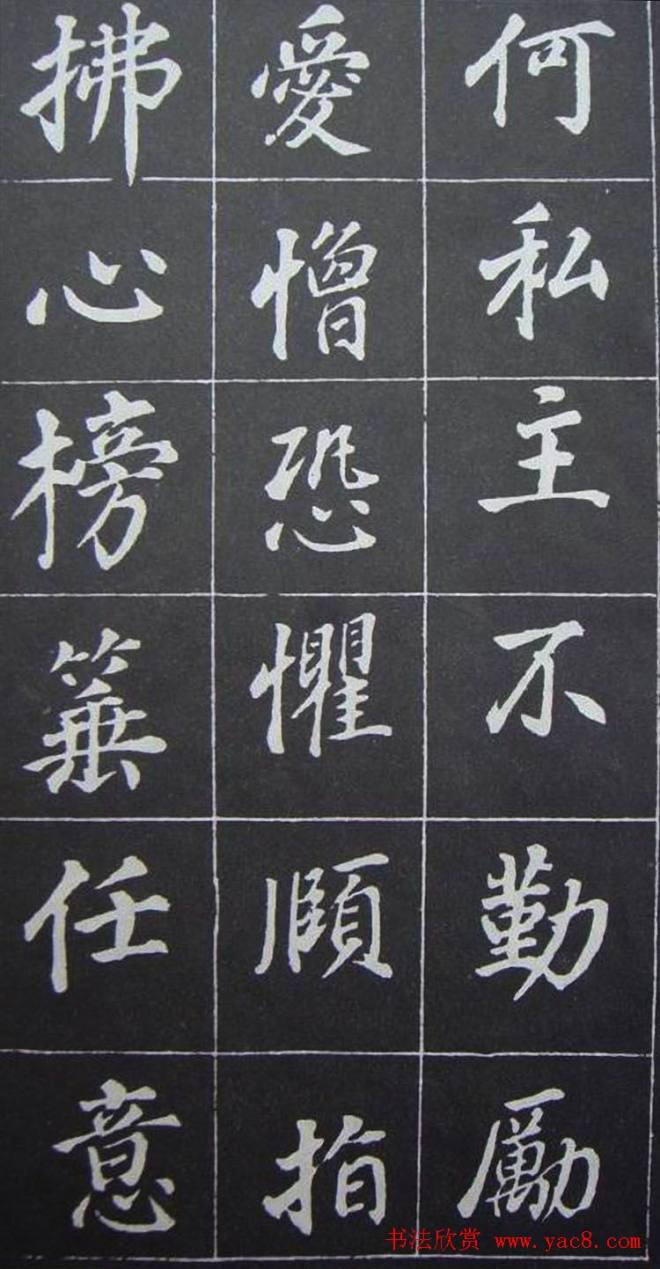 何私主不勤勵
愛憎恐懼順指
拂心榜箠任意
书法欣赏 www.yac8.com